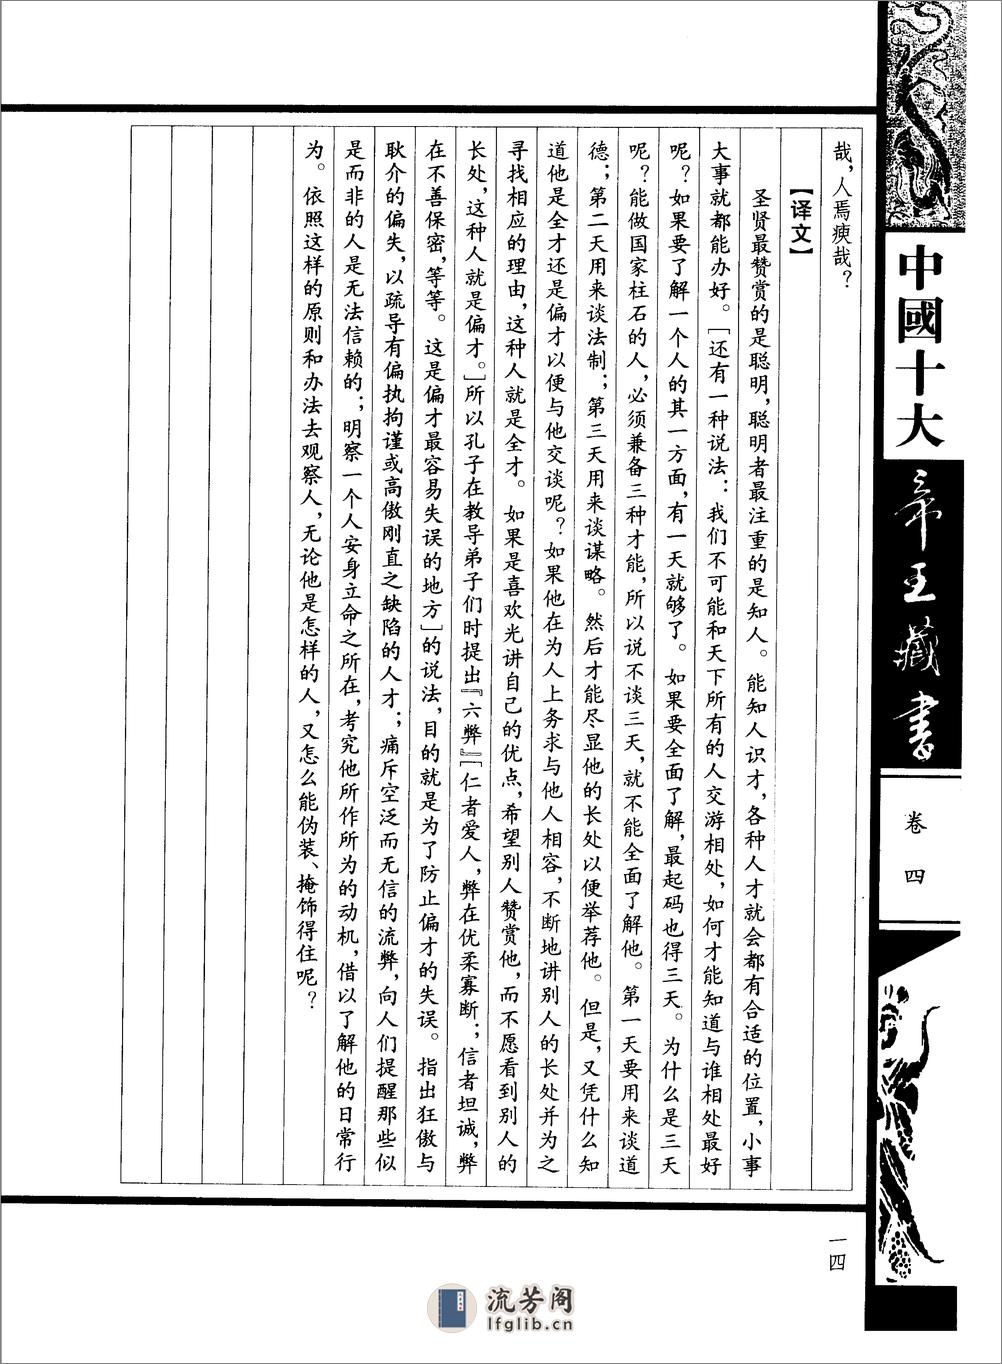 哉，人焉瘐哉？
【译文】
圣贤最赞赏的是聪明，聪明者最注重的是知人。能知人识才，各种人才就会都有合适的位置，小事
大事就都能办好。［还有一种说法：我们不可能和天下所有的人交游相处，如何才能知道与谁相处最好
呢？如果要了解一个人的其一方面，有一天就够了。如果要全面了解，最起码也得三天。为什么是三天
呢？能做国家柱石的人，必须兼备三种才能，所以说不谈三天，就不能全面了解他。第一天要用来谈道
德；第二天用来谈法制；第三天用来谈谋略。然后才能尽显他的长处以便举荐他。但是，又凭什么知
道他是全才还是偏才以便与他交谈呢？如果他在为人上务求与他人相容，不断地讲别人的长处并为之
寻找相应的理由，这种人就是全才。如果是喜欢光讲自己的优点，希望别人赞赏他，而不愿看到别人的
长处，这种人就是偏才。］所以孔子在教导弟子们时提出『六弊』［仁者爱人，弊在优柔寡断；信者坦诚，弊
在不善保密，等等。这是偏才最容易失误的地方］的说法，目的就是为了防止偏才的失误。指出狂傲与
耿介的偏失，以疏导有偏执拘谨或高傲刚直之缺陷的人才；痛斥空泛而无信的流弊，向人们提醒那些似
是而非的人是无法信赖的；明察一个人安身立命之所在，考究他所作所为的动机，借以了解他的日常行
为。依照这样的原则和办法去观察人，无论他是怎样的人，又怎么能伪装、掩饰得住呢？
中國十大
帝王藏書
卷四
一四
流芳阁
lfglib.cn